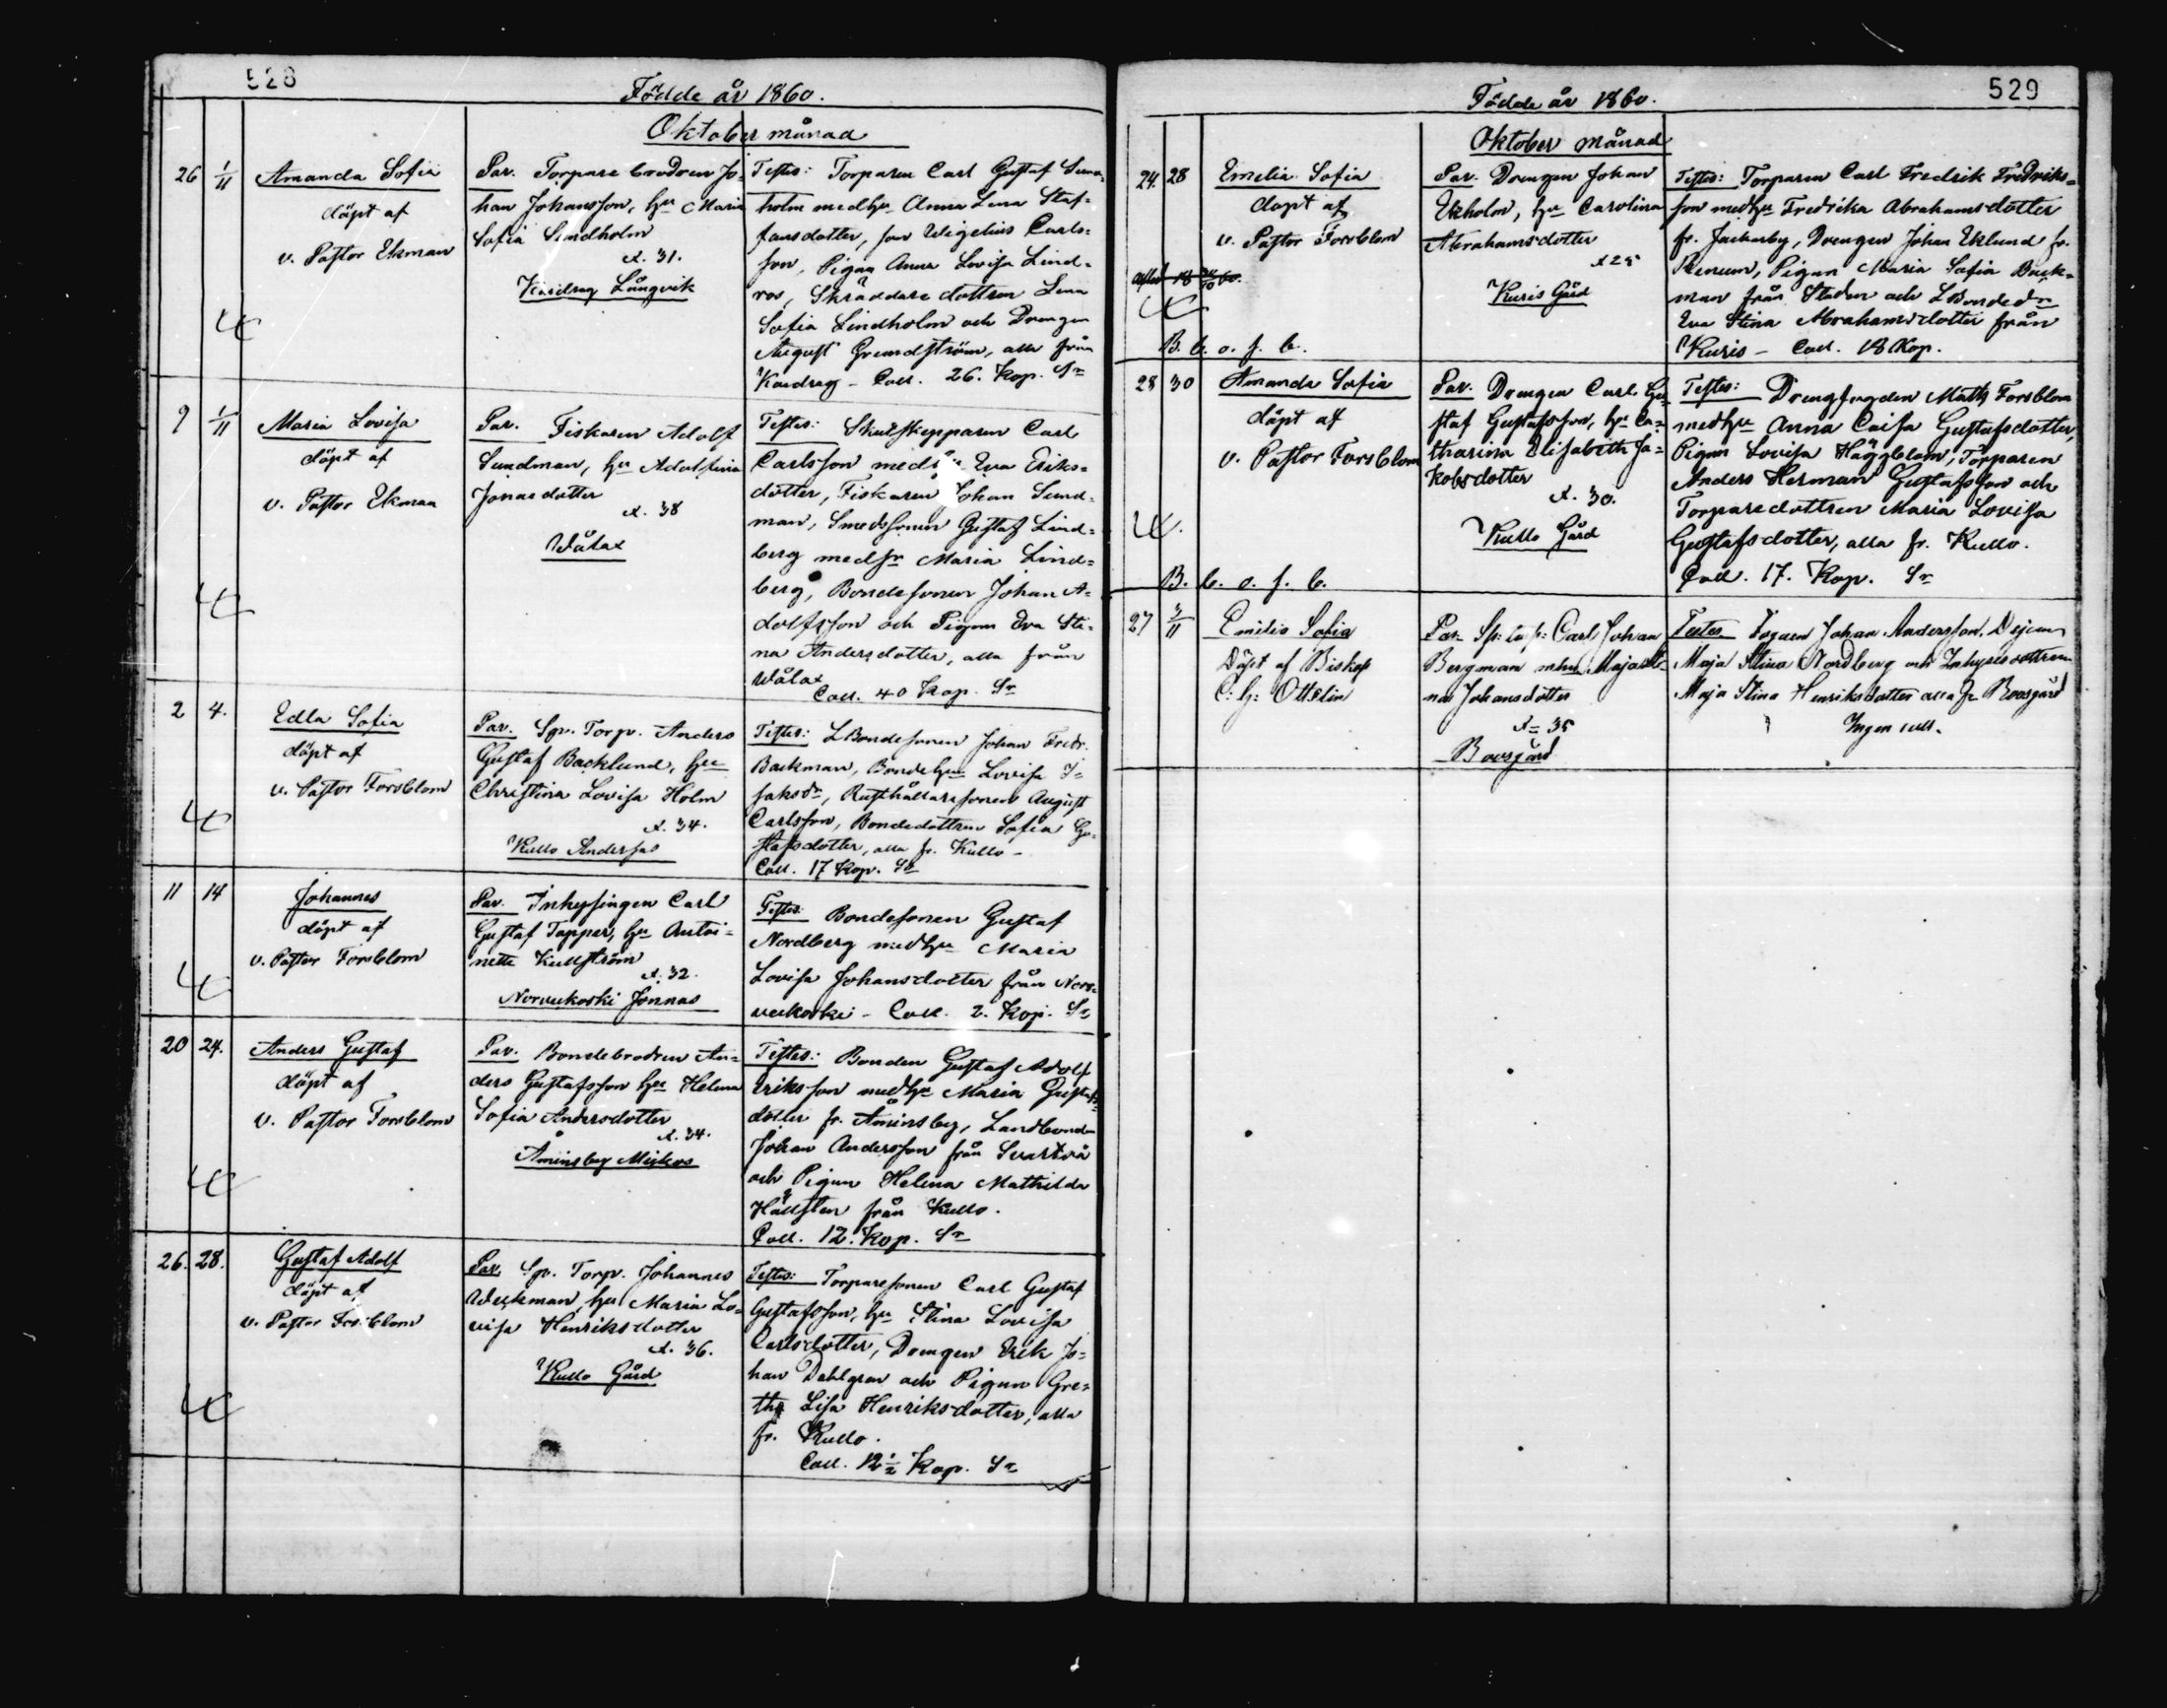 528
Födde år 1860.
Oktober månad
26 1/11 Amanda Sofia
döpt af
v. Pastor Ekman
Par. Torpare brodren Jo-
han Johansson, hu Maria
Sofia Lindholm
A. 31.
Kardrag Långvik
Testes: Torparen Carl Gustaf
holm med hu Anna Lena Staf-
fansdotter, son Wigelius Carls-
son, Pigan Anna Lovisa Lind-
ros, Skräddare dottren Lena
Sofia Lindholm och Drengen
August Grundström, alla från
Kardrag - Coll. 26. Kop. Sr
9 1/11 Maria Lovisa
döpt af
v. Pastor Ekman
Par. Fiskaren Adolf
Sundman, hu Adolfina
Jonasdotter
A. 38
Wålax
Testes: Skutskepparen Carl
Carlsson med Eva Eriks-
dotter, Fiskaren Johan Sund-
man, Smedsonen Gustaf Lind-
berg med Maria Lind-
berg, Bondesonen Johan A-
dolfsson och Pigan Eva Sti-
na Andersdotter, alla från
Wålax
Coll. 40 Kop. Sr
2 4. Edla Sofia
döpt af
v. Pastor Forsblom
Par. Sp. Torp. Anders
Gustaf Backlund, hu
Christina Lovisa Holm
A. 34.
Kullo Andersas
Testes: LBondesonen Johan Fredr.
Backman, Bonde hu Lovisa I-
saksdr, Rusthållaresonen August
Carlsson, Bondedottren Sofia Gu-
stafsdotter, alla fr. Kullo -
Coll. 17 Kop. Sr
11 14 Johannes
döpt af
v. Pastor Forsblom
Par. Inhysingen Carl
Gustaf Tapper, hu Antoi-
nette Kullström
A. 32.
Norveckoski Jönnas
Testes: Bondesonen Gustaf
Nordberg med hu Maria
Lovisa Johansdotter från Nor-
veckoski - Coll. 2. Kop. Sr
20 24. Anders Gustaf
döpt af
v. Pastor Forsblom
Par. Bondebrodren An-
ders Gustafsson hu Helena
Sofia Andersdotter
A. 34.
Åminsby Mickos
Testes: Bonden Gustaf Adolf
Eriksson med hu Maria Gustafs-
dotter fr. Åminsby, Landbonden
Johan Andersson från Svartså
och Pigan Helena Mathilda
Hällsten från Kullo.
Coll. 12. Kop. Sr
26. 28. Gustaf Adolf
döpt af
v. Pastor Forsblom
Par. Sp. Torp. Johannes
Weckman, hu Maria Lo-
visa Henriksdotter
A. 36.
Kullo Gård
Testes: Torparesonen Carl Gustaf
Gustafsson, hu Stina Lovisa
Carlsdotter, Drengen Erik Jo-
han Dahlgren och Pigan Gre-
tha Lisa Henriksdotter, alla
fr. Kullo.
Coll. 12 1/2 Kop. Sr
529
Födde år 1860.
Oktober månad
24. 28 Emelia Sofia
döpt af
v. Pastor Forsblom
B. b. o. f. b.
Par. Drengen Johan
Ekholm, hu Carolina
Abrahamsdotter
A 25
Kuris Gård
Testes: Torparen Carl Fredrik Fredriks-
son med hu Fredrika Abrahamsdotter
fr. Jackarby, Drengen Johan Eklund fr.
Pigan Maria Sofia Back-
man från Staden och LBondedr
Eva Stina Abrahamsdotter från
Kuris - Coll. 18 Kop.
28 30 Amanda Sofia
döpt af
v. Pastor Forsblom
B. b. o. f. b.
Par. Drengen Carl Gu-
staf Gustafsson, hu Ca-
tharina Elisabeth Ja-
kobsdotter
A. 30.
Kullo Gård
Testes: Drengfogden Matts Forsblom
med hu Anna Caisa Gustafsdotter,
Pigan Lovisa Häggblom, Torparen
Anders Herman Gustafsson och
Torparedottren Maria Lovisa
Gustafsdotter, alla fr. Kullo.
Coll. 17. Kop. Sr
27 3/11 Emilia Sofia
Döpt af Biskop
C: G: Ottelin
Par. Carl Johan
Bergman Maja Sti-
na Johansdotter
A= 35
Boesgård
Testes Johan Andersson,
Maja Stina Nordberg och Inhysesdottren
Maja Stina Henriksdotter alla fr Boesgård
Ingen coll.